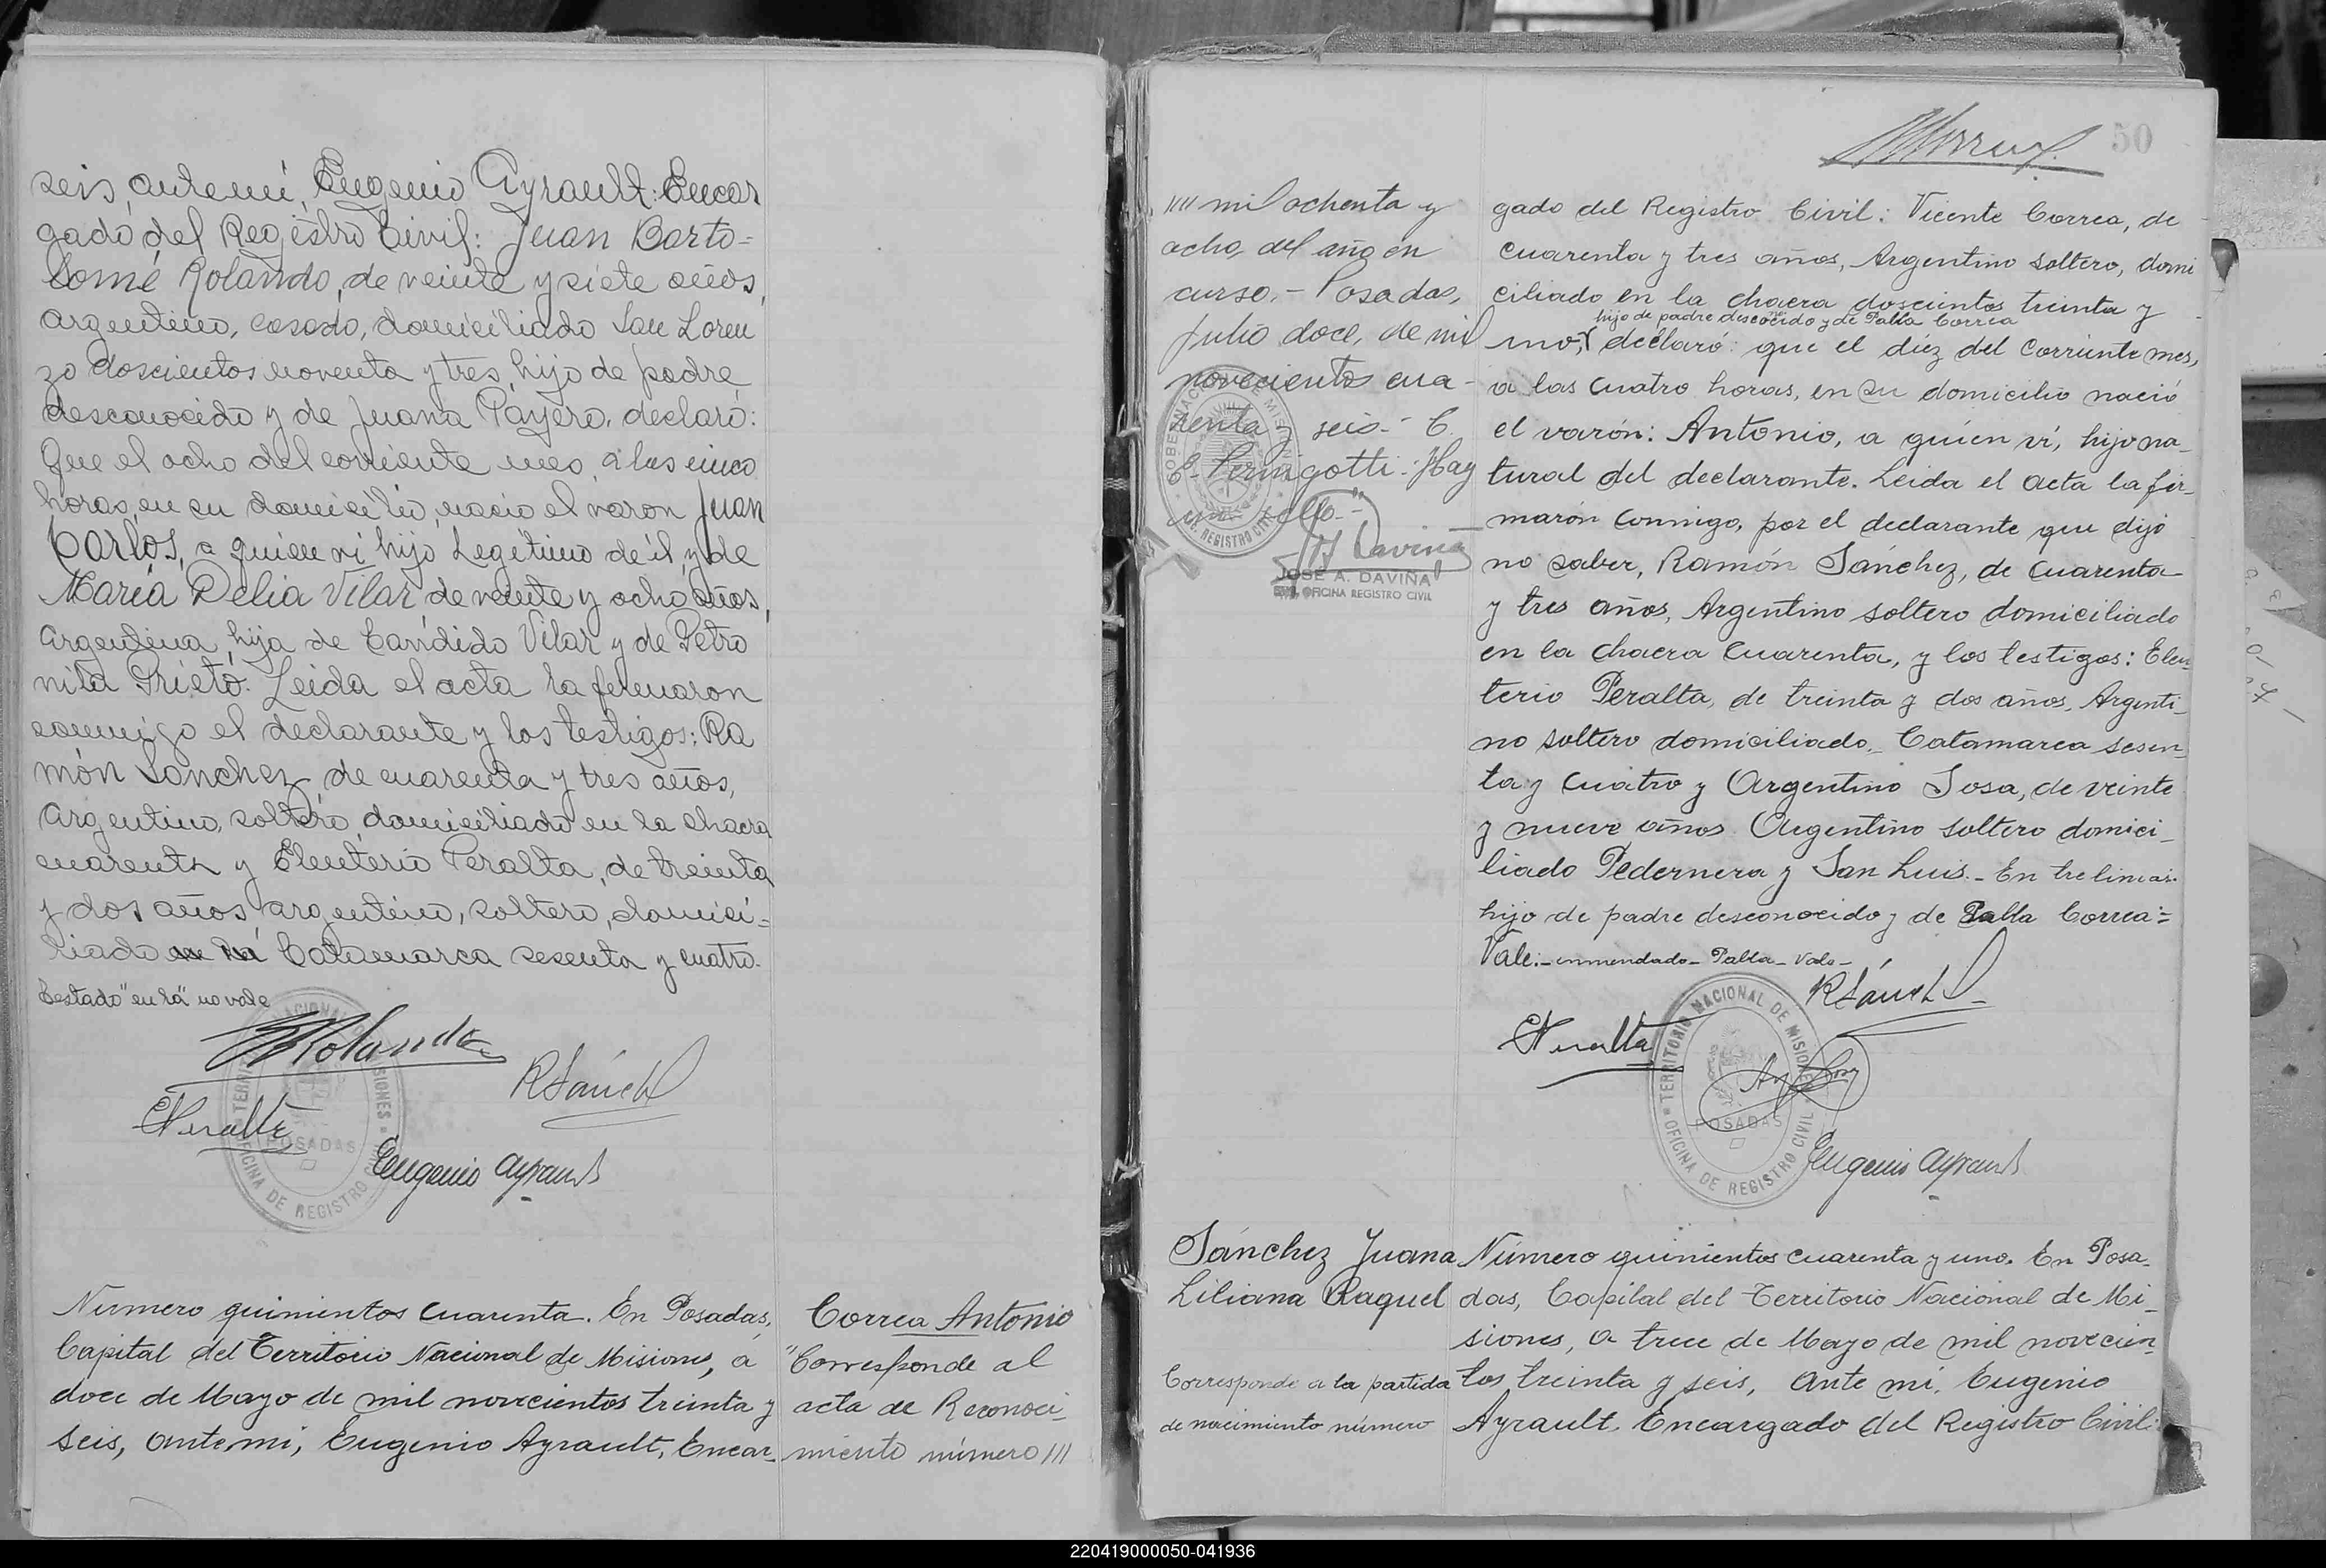 seis, ante mí, Eugenio Ayrault: Encar
gado del Registro Civil: Juan Barto=
lomé Rolando, de veinte y siete años,
argentino, casado, domiciliado San Loren
zo doscientos noventa y tres, hijo de padre
desconocido y de Juana Payero, declaró:
Que el ocho del corriente mes, a las cinco
horas, en su domicilio, nació el varon Juan
Carlos, a quien vi hijo Legítimo de él, y de
María Delia Vilar de veinte y ocho años,
Argentina, hija de Cándido Vilar y de Petro
nila Prieto. Leida el acta la firmaron
conmigo el declarante y los testigos: Ra
món Sanchez, de cuarenta y tres años,
Argentino, soltero, domiciliado en la chacra
cuarenta y Eleuterio Peralta, de treinta
y dos años argentino, soltero, domici=
liado en la Catamarca sesenta y cuatro.
Testado "en la" no vale
Rolando
RSánch
EPeralta
POSADAS
OFICINA DE REGISTRO CIVIL
Eugenio Ayrault
Número quinientos cuarenta. En Posadas,
Capital del Territorio Nacional de Misiones, a
doce de Mayo de mil novecientos treinta y
seis, ante mi, Eugenio Ayrault, Encar_
Correa Antonio
"Corresponde al
acta de Reconoci_
miento número ///
50
//// mil ochenta y
ocho, del año en
curso.- Posadas,
julio doce, de mil
novecientos cua-
renta y seis.- C.
Pernigotti.- Hay
un sello.-"
JOSÉ A. DAVIÑA
OFICINA REGISTRO CIVIL
gado del Registro Civil: Vicente Correa, de
cuarenta y tres años, Argentino soltero, domi
ciliado en la chacra doscientos treinta y
hijo de padre desconocido y de Pabla Correa
uno, declaró: que el diez del corriente mes,
a las cuatro horas, en su domicilio nació
el varón: Antonio, a quien ví, hijo na_
tural del declarante. Leida el acta la fir_
marón conmigo, por el declarante que dijo
no saber, Ramón Sánchez, de cuarenta
y tres años, Argentino soltero domiciliado
en la chacra cuarenta, y los testigos: Eleu_
terio Peralta, de treinta y dos años, Argenti_
no soltero domiciliado_ Catamarca sesen_
ta y cuatro y Argentino Sosa, de veinte
y nueve años Argentino soltero domici_
liado Pedernera y San Luis._ Entrelineas:
hijo de padre desconocido y de Pabla Correa:=
Vale:_ enmendado_ Pabla_ Vale_
RSánch
EPeralta
TERRITORIO NACIONAL DE MISIONES
POSADAS
OFICINA DE REGISTRO CIVIL
Eugenio Ayrault
Sánchez Juana
Liliana Raquel
Corresponde a la partida
de nacimiento número
Número quinientos cuarenta y uno. En Posa_
das, Capital del Territorio Nacional de Mi_
siones, a trece de Mayo de mil novecien_
tos treinta y seis, ante mi, Eugenio
Ayrault, Encargado del Registro Civil:
220419000050-041936